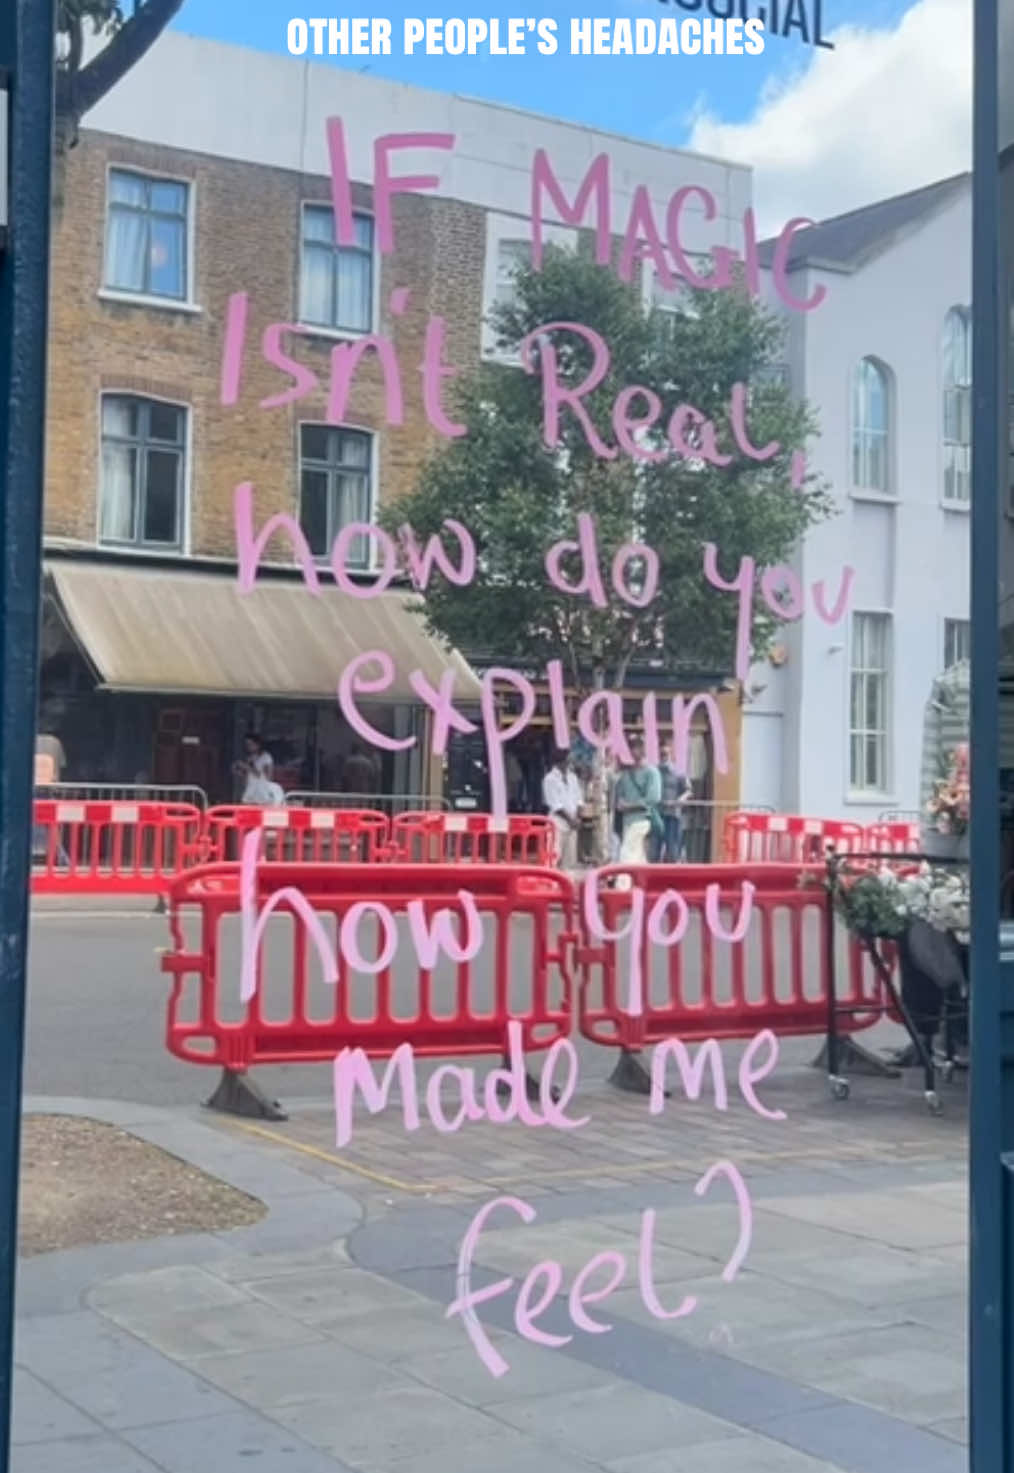 OTHER PEOPLE'S HEADACHES
IF MAGIC
Isn't Real,
how do you
explain
how you
made me
feel?